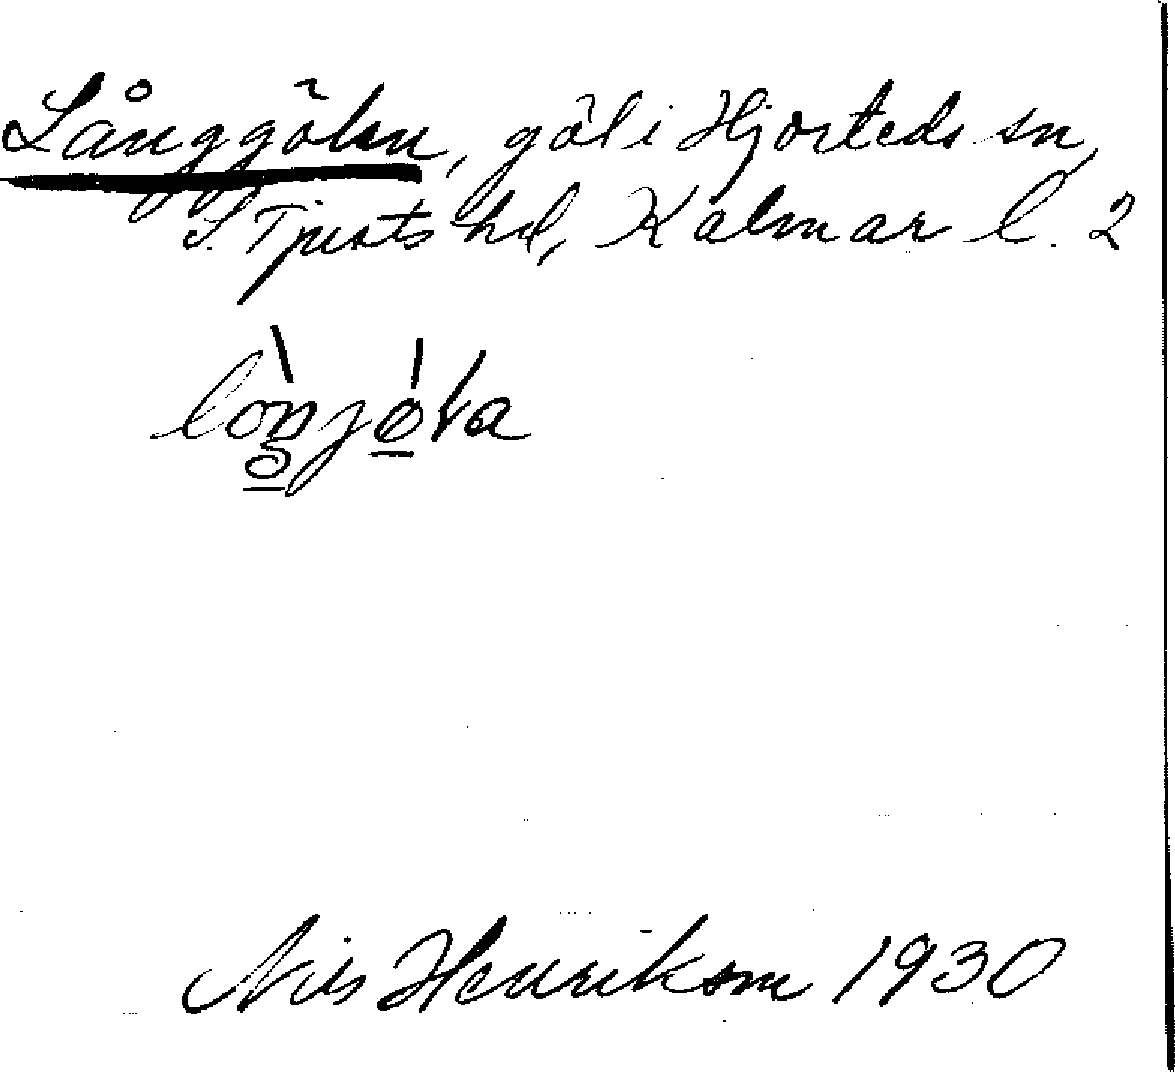 Långgölen, göl i Hjorteds sn,
S. Tjusts hd, Kalmar l. 2
Nils Henrikson 1930